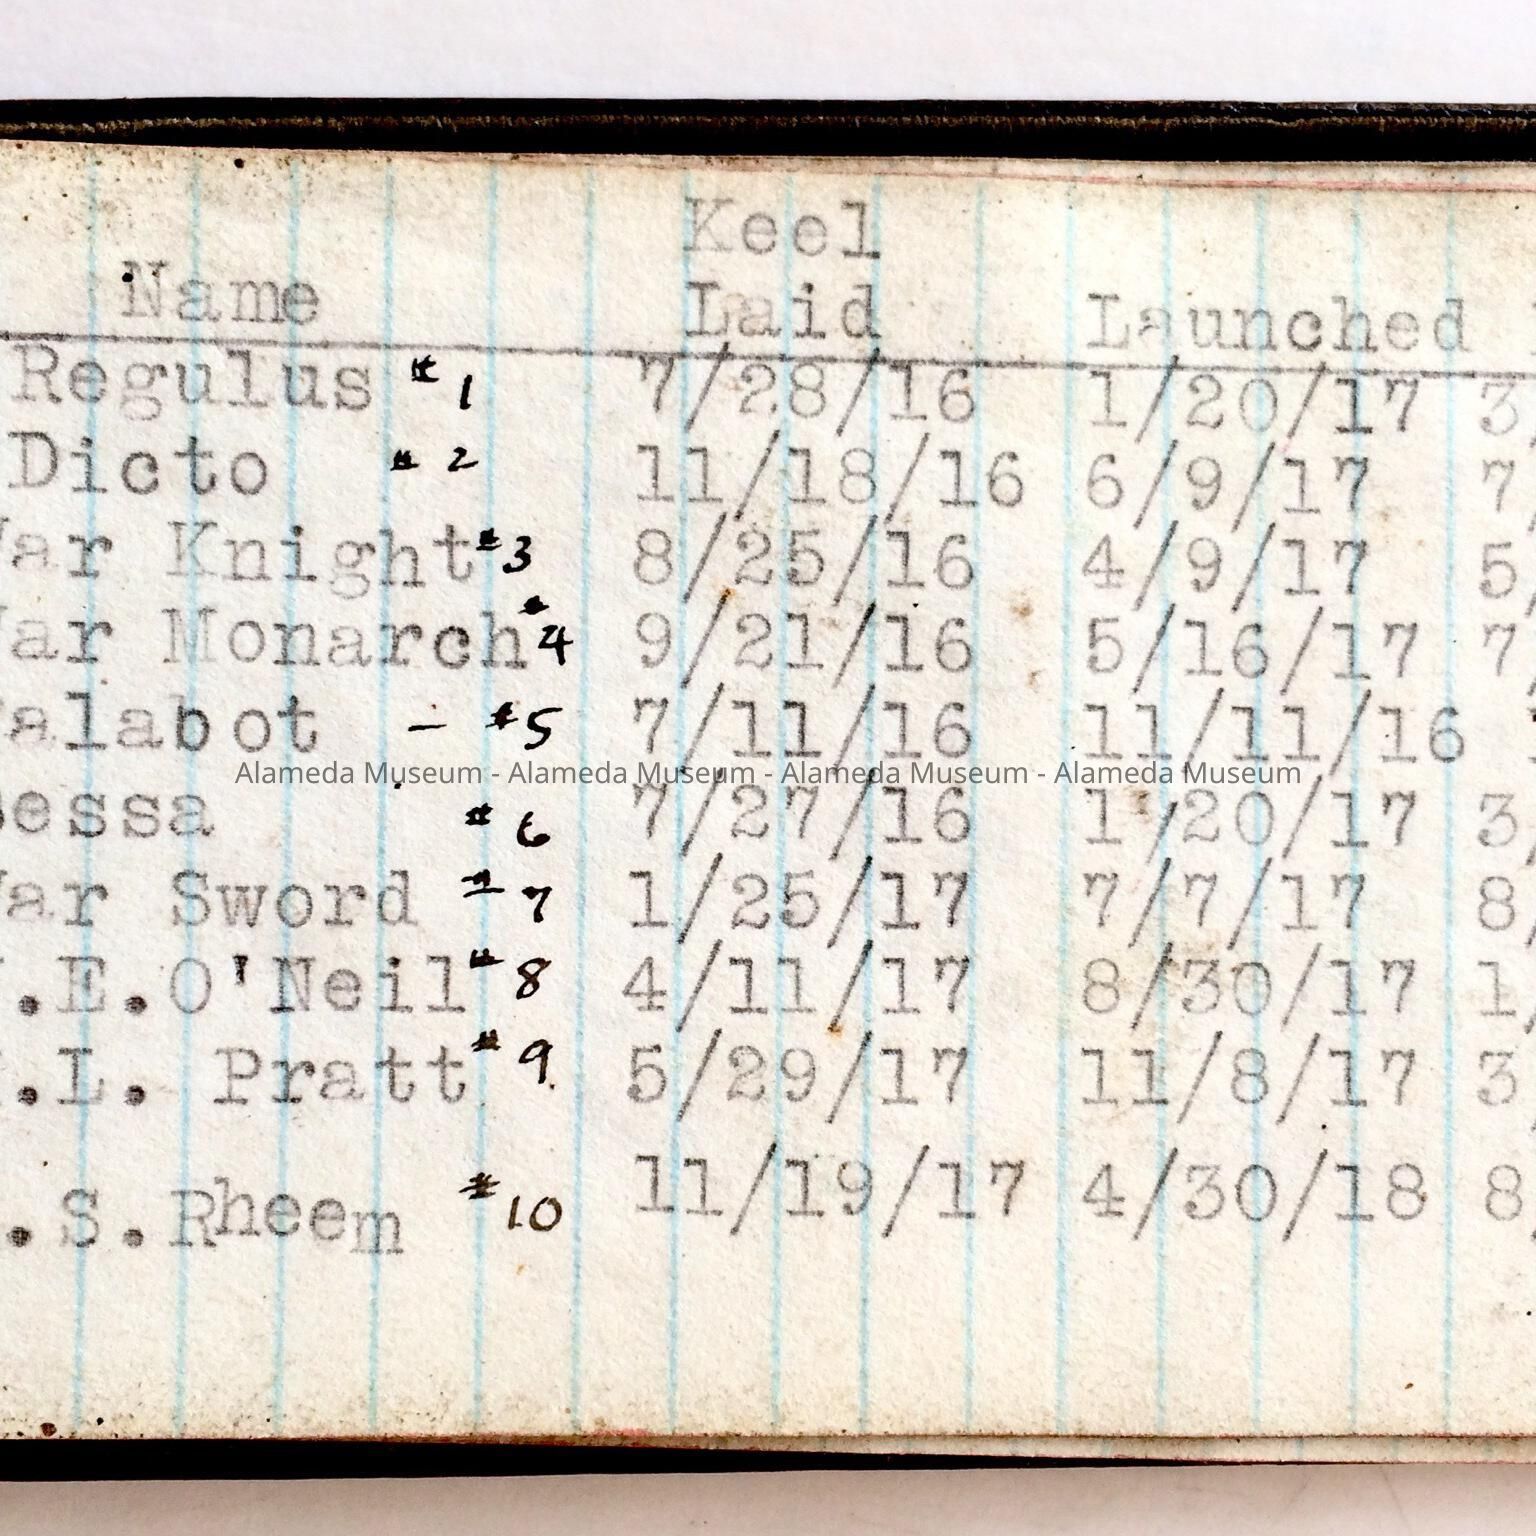 Keel
Name Laid Launched
Regulus #1 7/28/16 1/20/17 3
Dicto #2 11/18/16 6/9/17 7
War Knight #3 8/25/16 4/9/17 5/
War Monarch #4 9/21/16 5/16/17 7/
alabot - #5 7/11/16 11/11/16
Alameda Museum - Alameda Museum - Alameda Museum - Alameda Museum
essa #6 7/27/16 1/20/17 3/
War Sword #7 1/25/17 7/7/17 8/
.E.O'Neil #8 4/11/17 8/30/17 1/
.L. Pratt #9 5/29/17 11/8/17 3
.S.Rheem #10 11/19/17 4/30/18 8